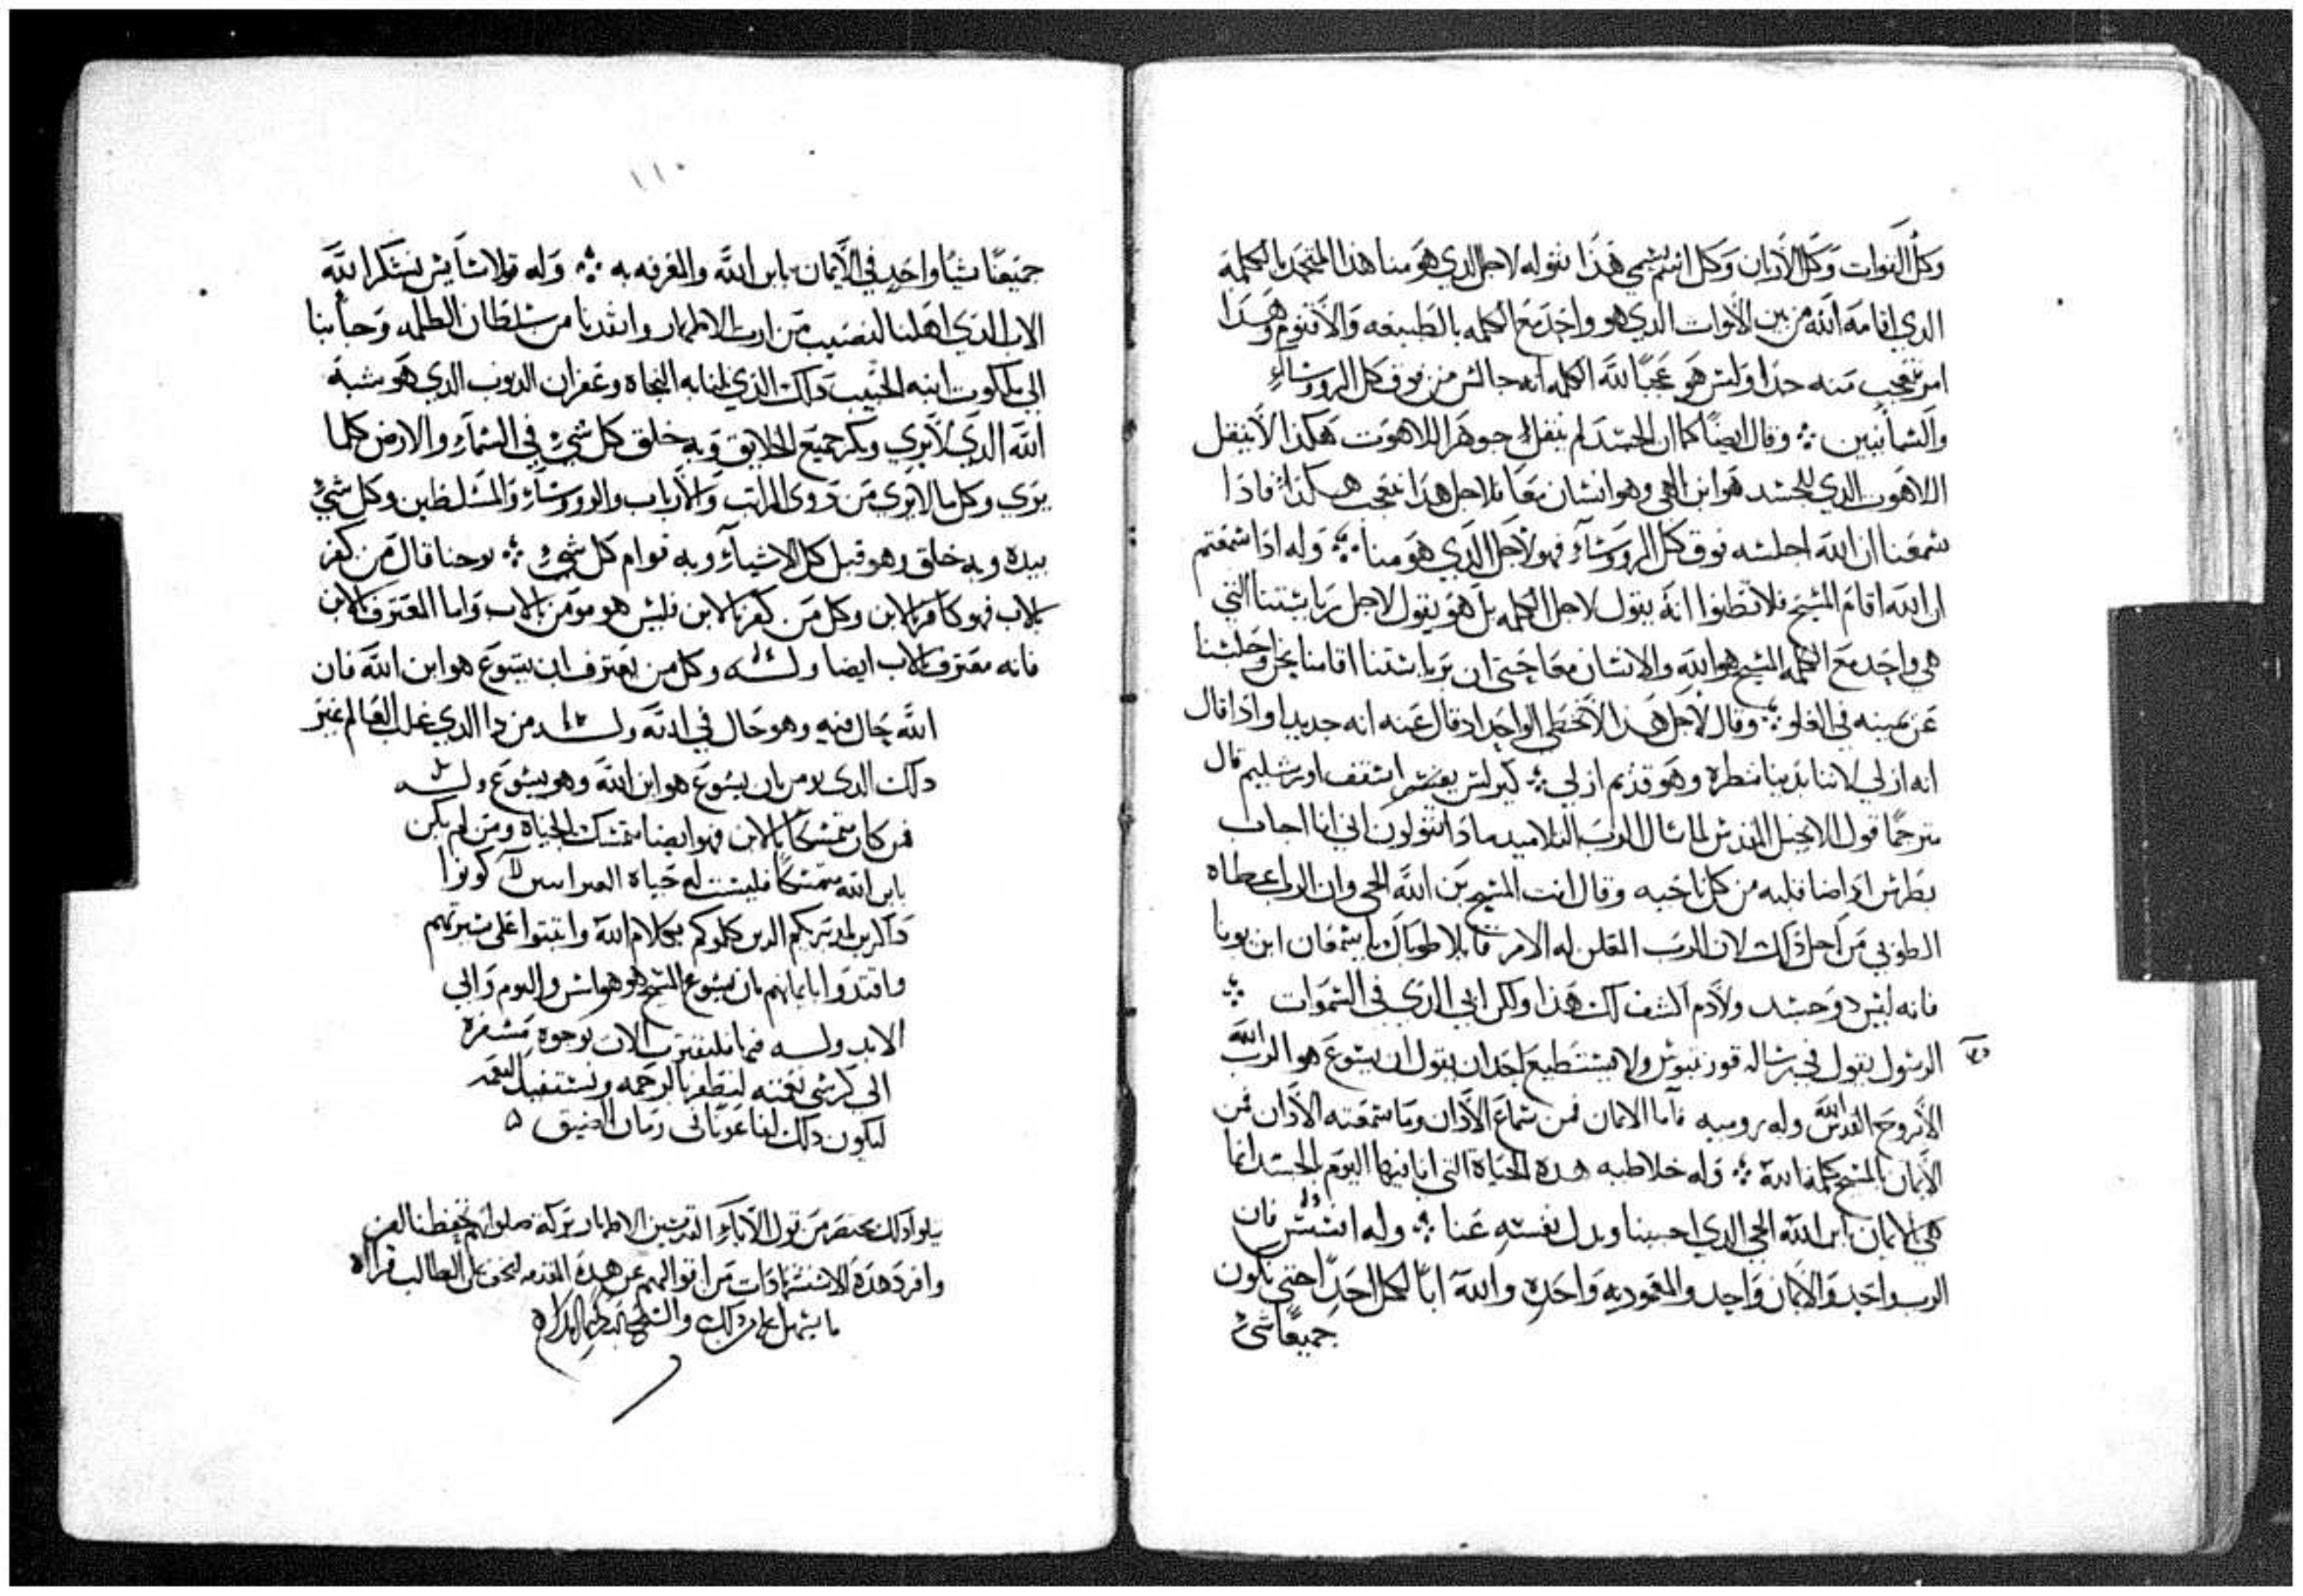 وكل القوات وكل الارباب وكل اسم يسمي هذا نقوله لاجل الدي هو منا هذا المتحد بالكلمة
الدي اقامه الله من بين الاموات الدي هو واحد مع الكلمه بالطبيعه والاقنوم وهدا
امر نتعجب منه جدا وليس هو عجبا لله الكلمه انه جالس من فوق كل الرووساء
والسمائيين وقال ايضا كما ان الجسد لم ينقل جوهر اللاهوت هكذا لا ينقل
اللاهوت الدي للجسد هو ابن الله وهو انسان معا فلاجل هدا نتعجب هكذا فادا
سمعنا ان الله اجلسه فوق كل الرووساء فهو لاجل الدي هو منا وله ادا سمعتم
ان الله اقام المسيح فلا تظنوا انه يقول لاجل الكلمه بل هو يقول لاجل رياستنا التي
هي واحد مع الكلمه المسيح هو الله والانسان معا حتي ان برياستنا اقامنا نحن واجلسنا
عن يمينه في العلو وقال لاجل هدا لا نخطي الواحد اد قال عنه انه جديد او ادا قال
انه ازلي لاننا وهو قديم ازلي كيرلس اسقف اورشليم قال
مترجما قول الانجيل المقدس لما سال الرب التلاميد مادا تقولون اني انا اجاب
بطرس اد اضا قلبه من كل ناحيه وقال انت المسيح بن الله الحي وان الرب اعطاه
الطوبي من اجل ذلك لان الرب المعلن له الامر قايلا طوباك يا سمعان ابن يونا
فانه ليس دو جسد ولا دم اكشف لك هذا ولكن ابي الدي في السموات
الرسول يقول في رساله قورنتيوس ولا يستطيع احد ان يقول ان يسوع هو الرب الله
الا بروح القدس الله وله روميه فاما الايمان فمن سماع الاذان وما سمعته الاذان فمن
الايمان بالمسيح كلمة الله وله غلاطيه هده الحياة التي انا فيها اليوم بالجسد انما
هي الايمان بابن الله الحي الدي احبنا وبدل نفسه عنا وله افسس فان
الرب واحد والايمان واحد والمعموديه واحده والله ابا لكل احد حتي نكون
جميعا شي
١١٠
جميعنا شيا واحد في الايمان بابن الله والمعرفه به وله قولاسايس نشكر الله
الاب الذي اهلنا لنصيب من ارث الاطهار وانقدنا من سلطان الظلمه وجا بنا
الي ملكوت ابنه الحبيب دلك الذي لنا به النجاه وغفران الدنوب الدي هو شبه
الله الدي لا يري وبكر جميع الخلايق وبه خلق كل شي في السماء والارض كلما
يري وكل ما لا يري من دوي المراتب والارباب والرووساء والمسلطين وكل شي
بيده وبه خلق وهو قبل كل الاشياء وبه قوام كل شي يوحنا قال من كفر
بالاب فهو كافر بالابن وكل من كفر بالابن فليس هو مومن بالاب واما المعترف بالابن
فانه معترف بالاب ايضا وله وكل من يعترف ان يسوع هو ابن الله فان
الله حال فيه وهو حال في الله وله من دا الدي غلب العالم غير
دلك الدي يومن بان يسوع هو ابن الله وهو يسوع وله
فمن كان متمسكا بالابن فهو ايضا متمسك بالحياة ومن لم يكن
بابن الله متمسكا فليست له حياة العبرانيين كونوا
داكرين لمدبريكم الدين كلموكم بكلام الله واثبتوا علي سيرتهم
واقتدوا بايمانهم بان يسوع المسيح هو هو امس واليوم والي
الابد وله فيها فليقترب الان بوجوه مسفرة
الي كرسي نعمته لنظفر بالرحمه ونستفيد النعمه
ليكون دلك لنا عونا في زمان الضيق
يتلوا دلك مختصر من قول الاباء القديسين الاطهار بركة صلواتهم تحفظنا امين
وافرد هده الاستشهادات من اقوالهم عن هده المقدمه لتخف علي الطالب قراه
ما يسهل عليه من دلك